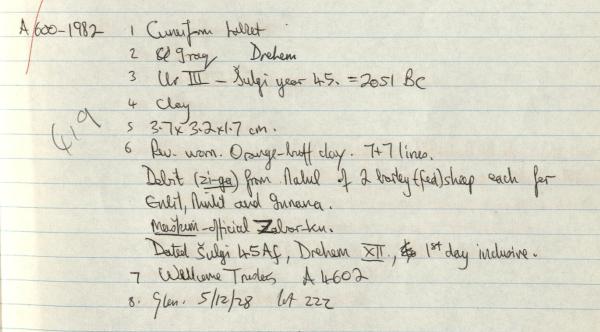 A 600-1982 1 Cuneiform tablet
2 Iraq Drehem
3 Ur III - Šulgi year 45. = 2051 BC
4 Clay
419
5 3.7 x 3.2 x 1.7 cm.
6 Rev. worn. Orange-buff clay. 7+7 lines.
Debit (zi-ga) from Nalul of 2 barley (fed) sheep each for
Enlil, Ninlil and Innana.
Maškim-official Zabar-ku.
Dated Šulgi 45Af, Drehem XII, 1st day inclusive.
7 Wellcome Trustees A 4602
8. Glen. 5/12/28 lot 222